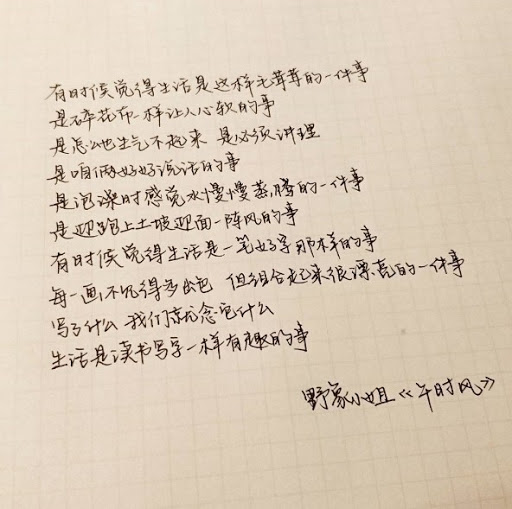 有时候觉得生活是这样毛茸茸的一件事
是碎花布一样让人心软的事
是怎么也生气不起来 是必须讲理
是咱俩好好说话的事
是泡澡时感觉水慢慢蒸腾的一件事
是迎跑上土坡迎面一阵风的事
有时候觉得生活是一笔好字那样的事
每一画不见得多出色 但组合起来很漂亮的一件事
写了什么 我们就念它什么
生活是读书写字一样有趣的事
野象小姐《午时风》